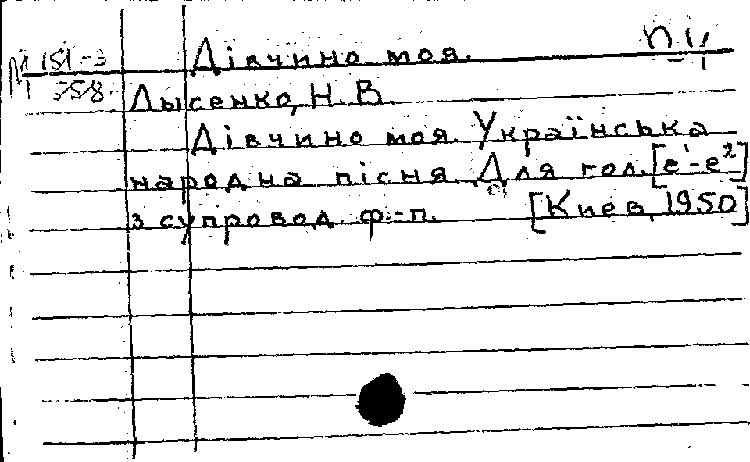 М 151-3 Дівчино моя. п-4
358 Лысенко, Н. В.
Дівчино моя. Українська
народна пісня. Для гол. [e¹-e²]
з супровод. ф.-п. [Киев, 1950]